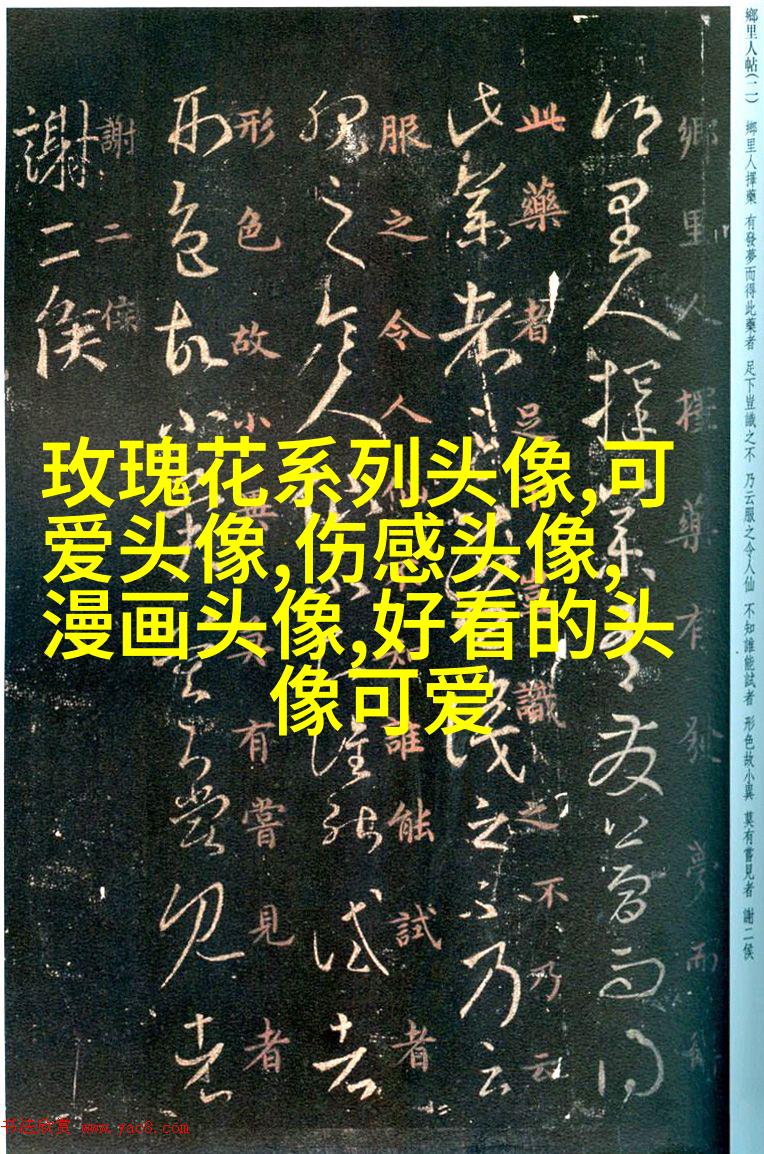 鄉里人帖(二) 鄉里人擇藥 有發夢而得此藥者 足下豈識之不 乃云服之令人仙 不知誰能試者 形色故小異 莫有嘗見者 謝二侯
鄉里人擇藥有發夢而
此藥者足豈識之不乃云
服之令人仙誰能試者
形色故小異莫有嘗見者
謝二侯
玫瑰花系列头像,可
爱头像,伤感头像,
漫画头像,好看的头
像可爱
书法欣赏 www.yac8.com